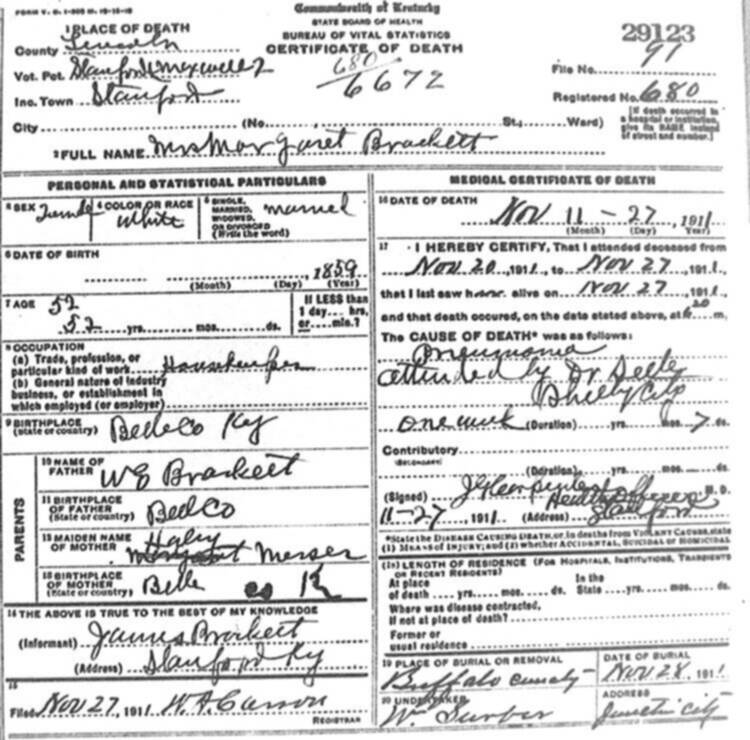 FORM V. S. 1-
Commonwealth of Kentucky
STATE BOARD OF HEALTH
BUREAU OF VITAL STATISTICS
CERTIFICATE OF DEATH
1 PLACE OF DEATH
County Lincoln
Vot. Pct. Stanford Maxwell 2
Inc. Town Stanford
680
6672
29123
91
File No.
Registered No. 680
City (No. St.; Ward)
[If death occurred in a hospital or institution, give its NAME instead of street and number.]
2 FULL NAME Mrs Margaret Brackett
PERSONAL AND STATISTICAL PARTICULARS
3 SEX
4 COLOR OR RACE White
5 SINGLE, MARRIED, WIDOWED, OR DIVORCED (Write the word)
6 DATE OF BIRTH
1859
(Month) (Day) (Year)
7 AGE 52
52 yrs. mos. ds.
If LESS than 1 day... hrs. or... min.?
8 OCCUPATION
(a) Trade, profession, or particular kind of work Housekeeper
(b) General nature of industry business, or establishment in which employed (or employer)
9 BIRTHPLACE (State or country) Belle Co Ky
PARENTS
10 NAME OF FATHER W E Brackett
11 BIRTHPLACE OF FATHER (State or country) Bell Co
12 MAIDEN NAME OF MOTHER Margaret
13 BIRTHPLACE OF MOTHER (State or country) Belle co K
14 THE ABOVE IS TRUE TO THE BEST OF MY KNOWLEDGE
(Informant) James Brackett
(Address) Stanford Ky
15
Filed Nov 27, 1911 W. A. Carson
REGISTRAR
MEDICAL CERTIFICATE OF DEATH
16 DATE OF DEATH
Nov 11 - 27 1911
(Month) (Day) (Year)
17 I HEREBY CERTIFY, That I attended deceased from
Nov 20, 1911, to Nov 27, 1911,
that I last saw h alive on Nov 27, 1911,
and that death occured, on the date stated above, at m.
The CAUSE OF DEATH* was as follows:
Pneumonia
attended by Dr
one week (Duration) yrs. mos. 7 ds.
Contributory
(SECONDARY)
(Duration) yrs. mos. ds.
(Signed) J G Carpenter Health Officer M. D.
11-27, 1911 (Address) Stanford
*State the DISEASE CAUSING DEATH, or, in deaths from VIOLENT CAUSES, state (1) MEANS of INJURY; and (2) whether ACCIDENTAL, SUICIDAL or HOMICIDAL
(18) LENGTH OF RESIDENCE (FOR HOSPITALS, INSTITUTIONS, TRANSIENTS OR RECENT RESIDENTS)
At place of death yrs. mos. ds. In the State yrs. mos. ds.
Where was disease contracted, if not at place of death?
Former or usual residence
19 PLACE OF BURIAL OR REMOVAL
Buffalo
DATE OF BURIAL
Nov 28, 1911
20 UNDERTAKER
W.
ADDRESS
Junction City